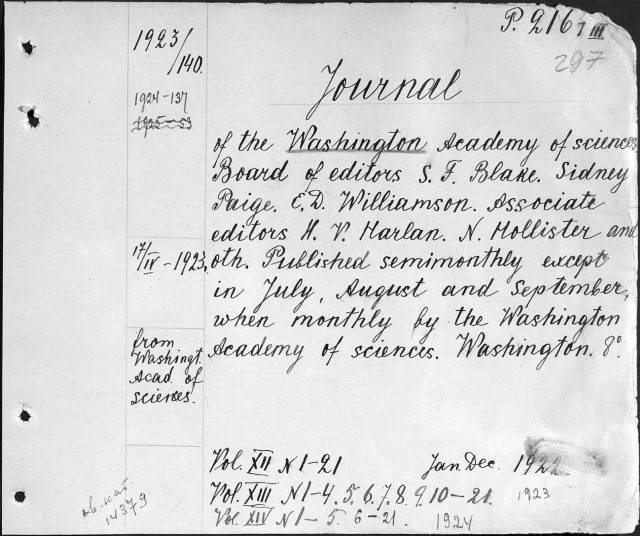 P. 216/III
297
1923/140.
1924-137
1925-53
17/IV - 1923.
from
Washingt.
Acad. of
sciences.
Journal
of the Washington Academy of sciences
Board of editors S. F. Blake. Sidney
Paige. E.D. Williamson. Associate
editors H. V. Harlan. N. Hollister and
oth. Published semimonthly except
in July, August and September,
when monthly by the Washington
Academy of sciences. Washington. 8°.
Vol. XII N 1-21 Jan Dec. 1922
Vol. XIII N 1-4. 5. 6. 7. 8. 9. 10-21. 1923
Vol. XIV N 1- 5. 6-21. 1924
кв. кат.
14379